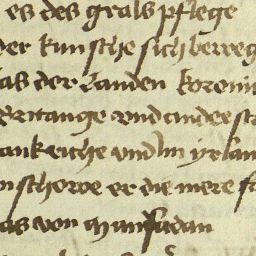 es des grals pflege
der kunsche sich beweg
las der landen koroni
Britange vnd anderst
rankriche vnd in yrlan
nschowe er die mere f
as von manssadan